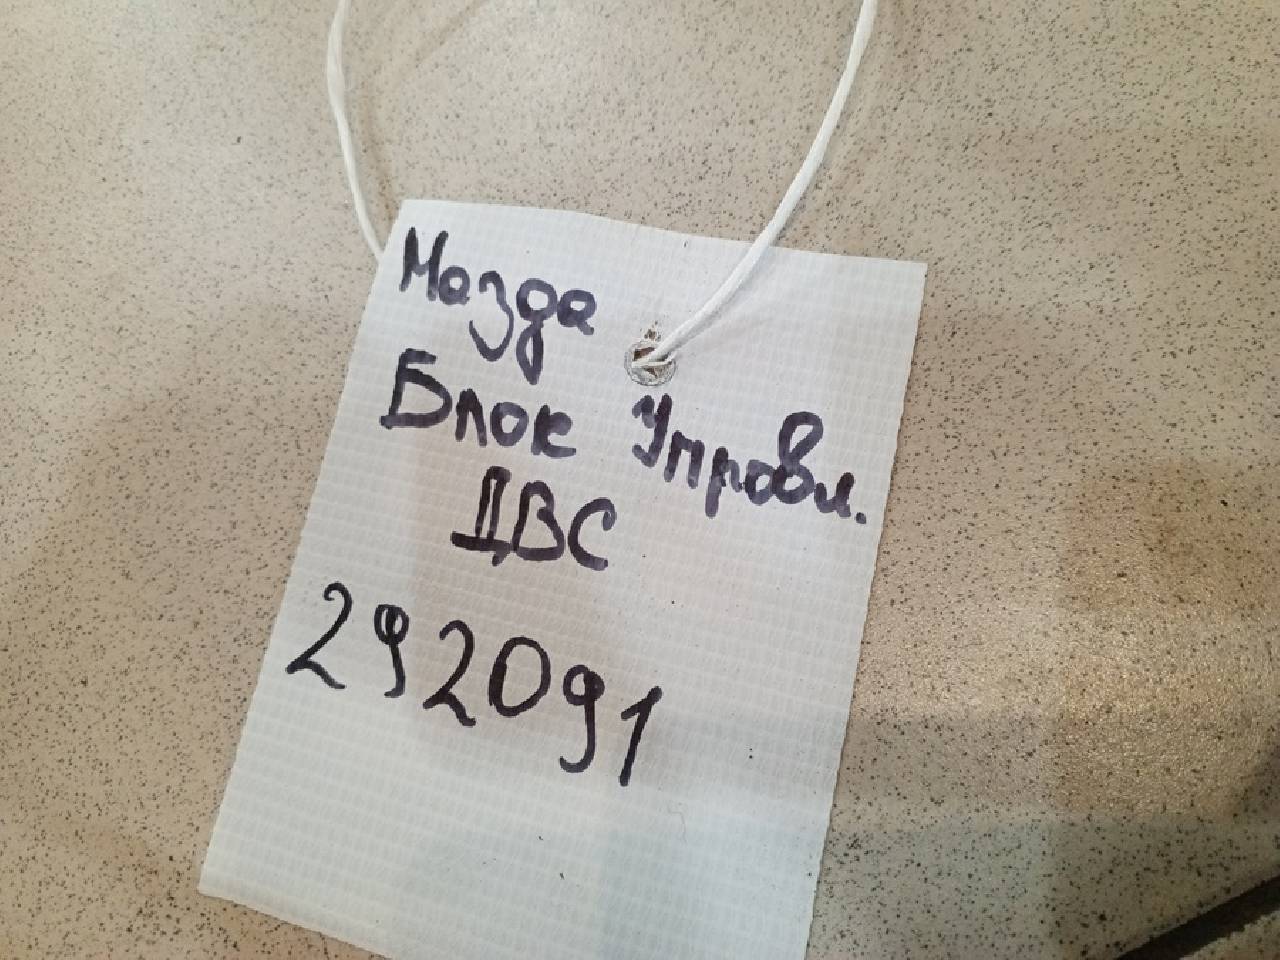 Мазда
Блок Управл.
ДВС
292091